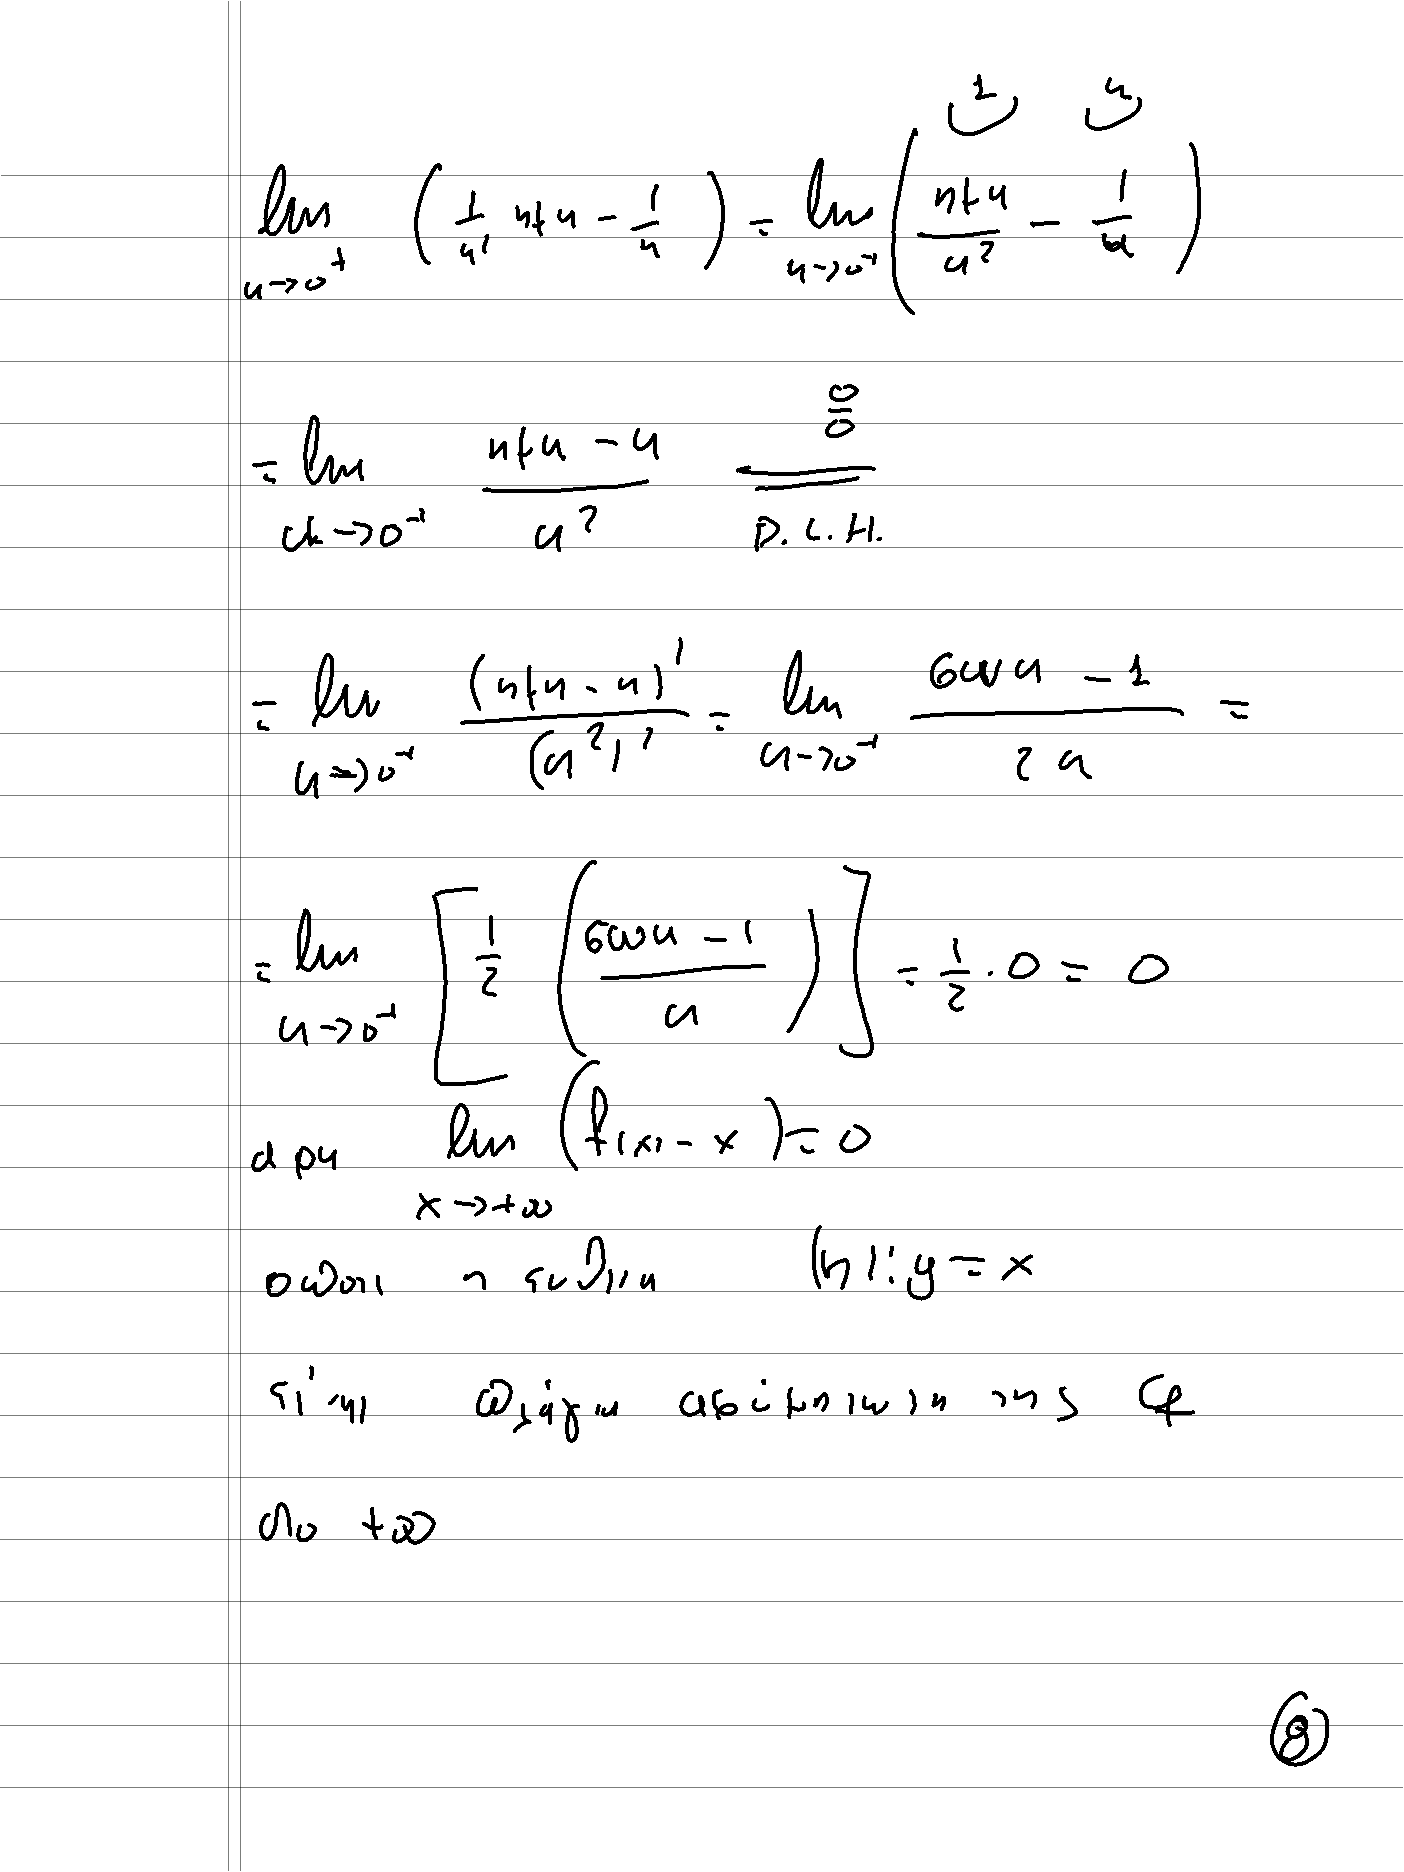 lim u→0⁺ ( 1/u² ημu - 1/u ) = lim u→0⁺ ( ημu/u² - 1/u )
= lim u→0⁺ (ημu - u)/u² = 0/0 D.L.H.
= lim u→0⁺ (ημu - u)'/(u²)' = lim u→0⁺ (συνu - 1)/2u =
= lim u→0⁺ [ 1/2 ( (συνu - 1)/u ) ] = 1/2 · 0 = 0
άρα lim x→+∞ (f(x) - x) = 0
οπότε η ευθεία (η): y = x
είναι πλάγια ασύμπτωτη της Cf
στο +∞
8